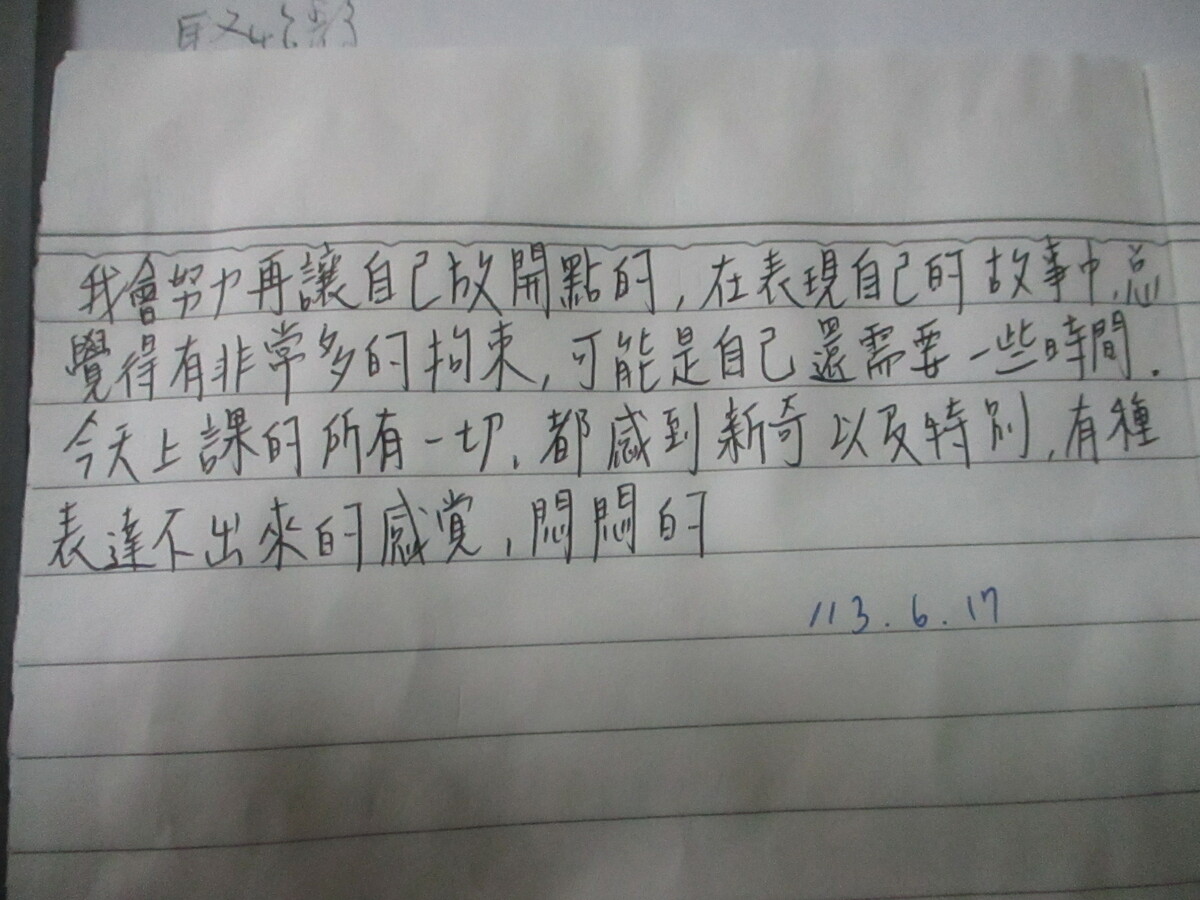 我會努力再讓自己放開點的,在表現自己的故事中,总
覺得有非常多的拘束,可能是自己還需要一些時間.
今天上課的所有一切,都感到新奇以及特別,有種
表達不出來的感覚,悶悶的
113.6.17